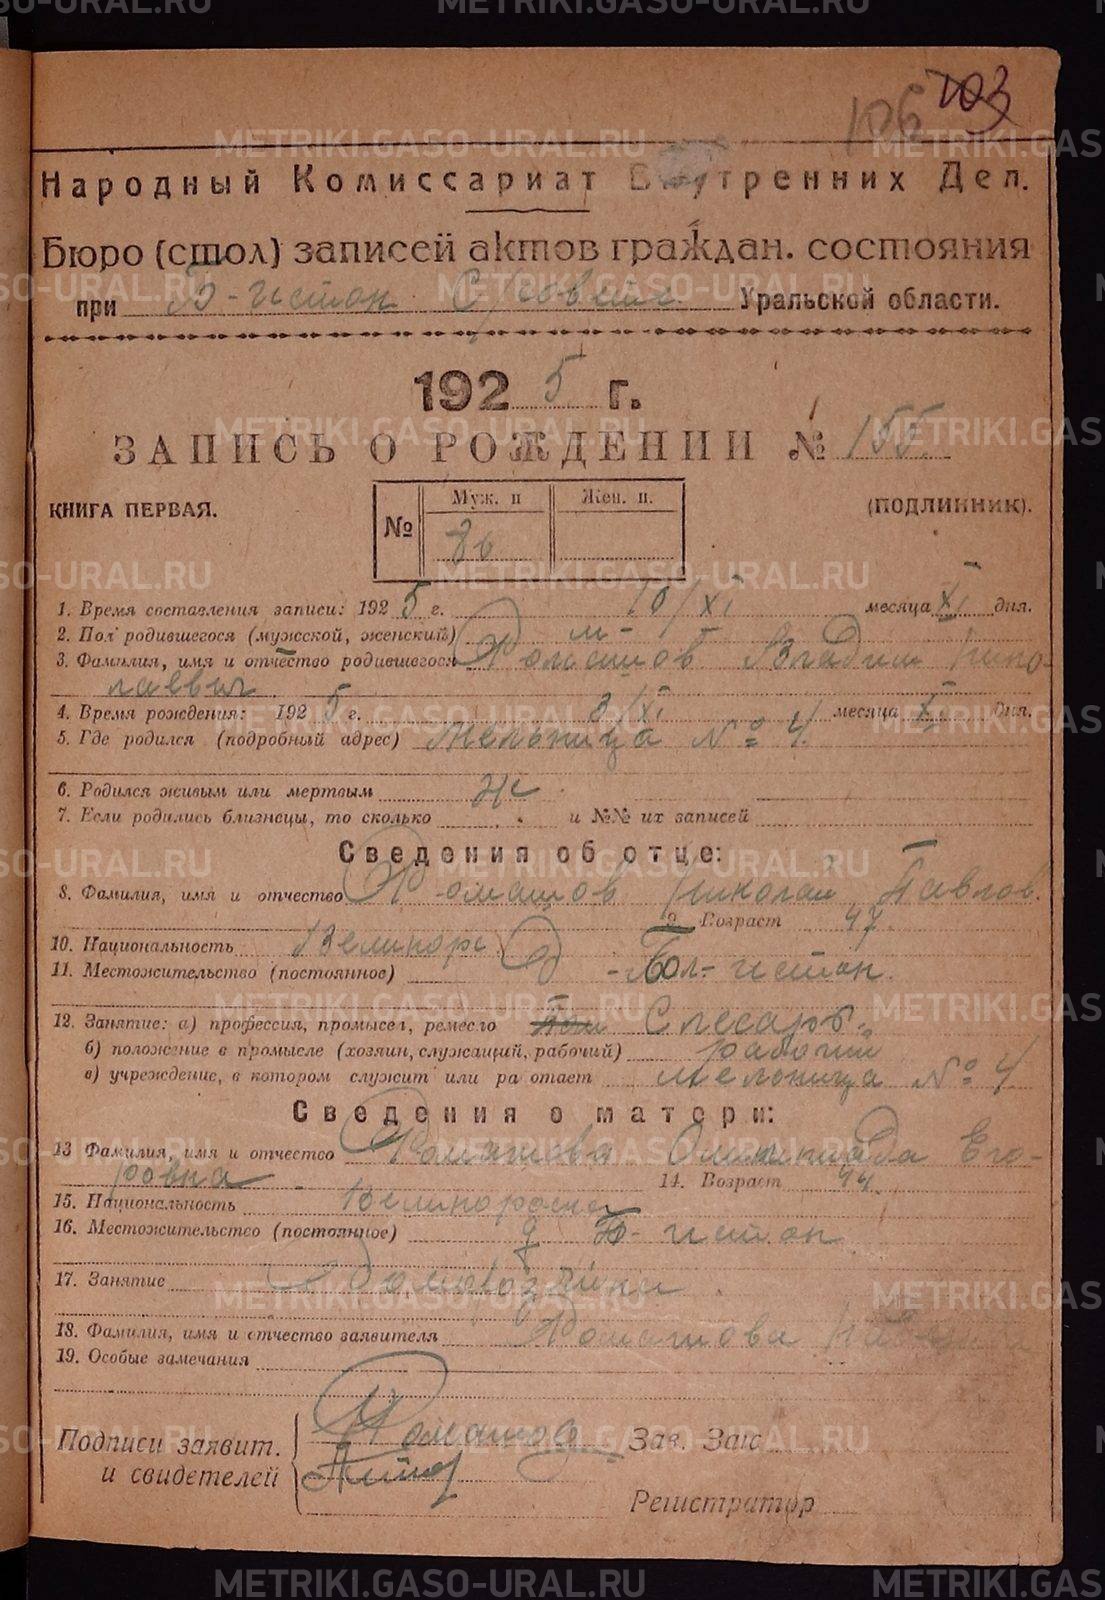 106 103
Народный Комиссариат Внутренних Дел.
Бюро (стол) записей актов граждан. состояния
при Б-исток Уральской области.
1925 г.
ЗАПИСЬ О РОЖДЕНИИ № 155.
КНИГА ПЕРВАЯ. № Муж. п Жен. п. (ПОДЛИННИК).
1. Время составления записи: 1925 г. 10/XI месяца XI дня.
2. Пол родившегося (мужской, женский) м-
3. Фамилия, имя и отчество родившегося Ромашов Владим Нико-
лаевич
4. Время рождения: 1925 г. 3/XI месяца XI дня.
5. Где родился (подробный адрес) Мельница № 4.
6. Родился живым или мертвым
7. Если родились близнецы, то сколько и №№ их записей
Сведения об отце:
8. Фамилия, имя и отчество Ромашов Николай Павлов.
9. Возраст 47
10. Национальность Великорс
11. Местожительство (постоянное) д -Бол- исток.
12. Занятие: а) профессия, промысел, ремесло Слесарь
б) положение в промысле (хозяин, служащий, рабочий) рабочий
в) учреждение, в котором служит или ра отает мельница № 4
Сведения о матери:
13 Фамилия, имя и отчество Ромашова Олимпиада Его-
ровна 14. Возраст 44.
15. Национальность Великороска
16. Местожительство (постоянное) д Б- исток
17. Занятие Домохозяйка
18. Фамилия, имя и отчество заявителя Ромашова
19. Особые замечания
Подписи заявит. Ромашов Зав. Загс
и свидетелей
Регистратор
METRIKI.GASO-URAL.RU